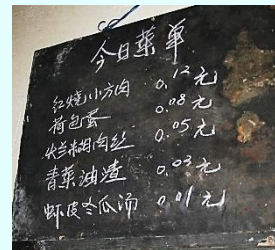 今日菜单
红烧小方肉 0.12元
荷包蛋 0.08元
烂糊肉丝 0.05元
青菜油渣 0.03元
虾皮冬瓜汤 0.01元